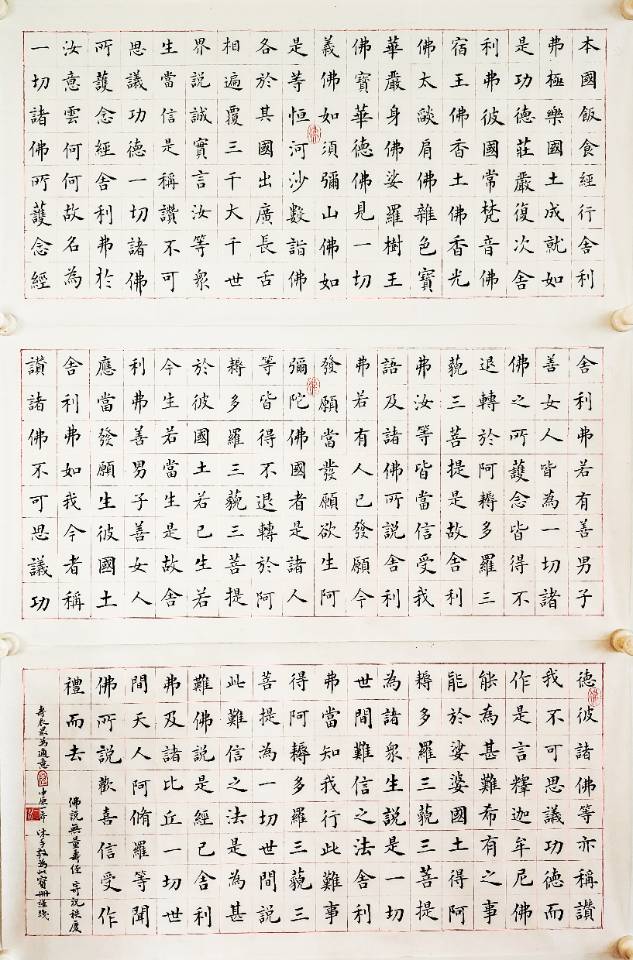 本國飯食經行舍利
弗極樂國土成就如
是功德莊嚴復次舍
利弗彼國常梵音佛
宿王佛香土佛香光
佛太燄肩佛雜色寶
華嚴身佛娑羅樹王
佛寶華德佛見一切
義佛如須彌山佛如
是等恒河沙數詣佛
各於其國出廣長舌
相遍覆三千大千世
界說誠實言汝等眾
生當信是稱讚不可
思議功德一切諸佛
所護念經舍利弗於
汝意雲何何故名為
一切諸佛所護念經
舍利弗若有善男子
善女人皆為一切諸
佛之所護念皆得不
退轉於阿耨多羅三
藐三菩提是故舍利
弗汝等皆當信受我
語及諸佛所說舍利
弗若有人已發願今
發願當發願欲生阿
彌陀佛國者是諸人
等皆得不退轉於阿
耨多羅三藐三菩提
於彼國土若已生若
今生若當生是故舍
利弗善男子善女人
應當發願生彼國土
舍利弗如我今者稱
讚諸佛不可思議功
德彼諸佛等亦稱讚
我不可思議功德而
作是言釋迦牟尼佛
能為甚難希有之事
能於娑婆國土得阿
耨多羅三藐三菩提
為諸眾生說是一切
世間難信之法舍利
弗當知我行此難事
得阿耨多羅三藐三
菩提為一切世間說
此難信之法是為甚
難佛說是經已舍利
弗及諸比丘一切世
間天人阿脩羅等聞
佛所說歡喜信受作
禮而去
佛說無量壽經